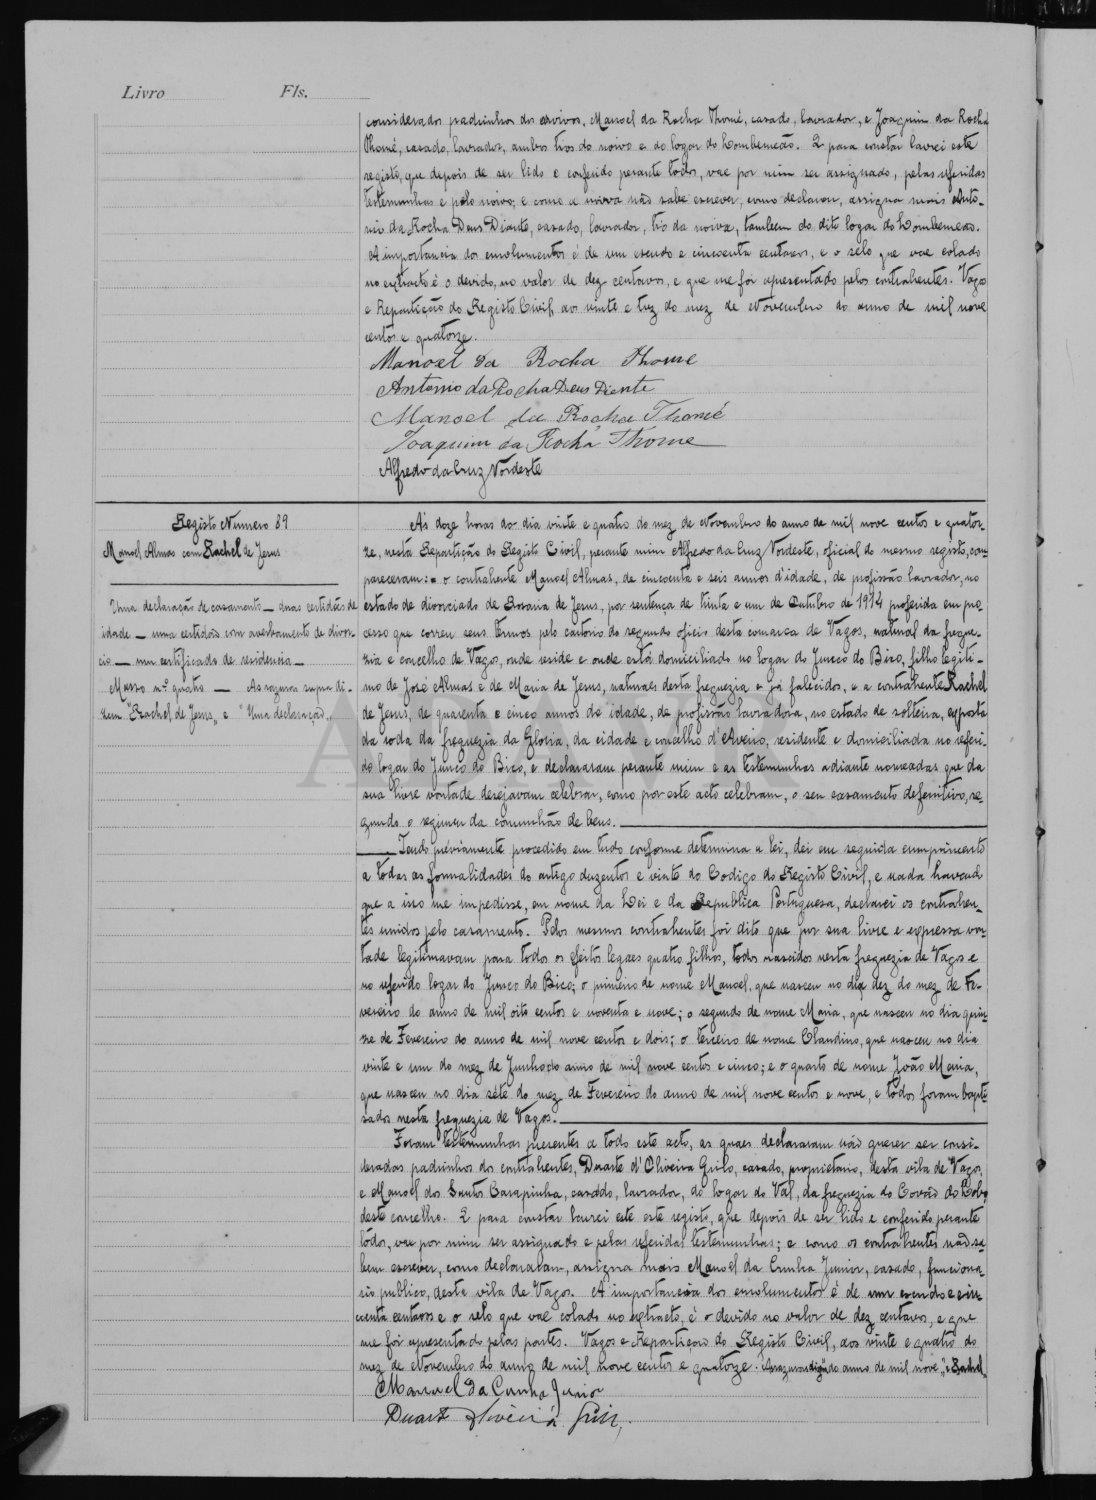 Livro Fls.
considerados padrinhos dos noivos, Manoel da Rocha Thomé, casado, lavrador, e Joaquim da Rocha
Thomé, casado, lavrador, ambos tios do noivo e do logar do Lombomeão. E para constar lavrei este
registo, que depois de ser lido e conferido perante todos, vae por mim ser assignado, pelas referidas
testemunhas e pelo noivo; e como a noiva não sabe escrever, como declarou, assigna mais Anto-
nio da Rocha Deus Diante, casado, lavrador, tio da noiva, tambem do dito logar do Lombomeão.
A importancia dos emolumentos é de um escudo e cincoenta centavos, e o selo que vae colado
no extracto é o devido, no valor de dez centavos, e que me foi apresentado pelos contrahentes. Vagos
e Repartição do Registo Civil, aos vinte e trez do mez de Novembro do anno de mil nove
centos e quatorze.
Manoel da Rocha Thome
Antonio da Rocha Deus Diante
Manoel da Rocha Thomé
Joaquim da Rocha Thome
Alfredo da Cruz Nordeste
Registo Numero 89
Manoel Almas com Rachel de Jesus
Uma declaração de casamento — duas certidões de
idade — uma certidão com averbamento de divor-
cio — um certificado de residencia —
Masso n.º quatro — As rasuras supra di-
zem "Rachel de Jesus, e "Uma declaração,,
A's doze horas do dia vinte e quatro do mez de Novembro do anno de mil nove centos e quator-
ze, nesta Repartição do Registo Civil, perante mim Alfredo da Cruz Nordeste, oficial do mesmo registo, com-
pareceram: o contrahente Manoel Almas, de cincoenta e seis annos d'idade, de profissão lavrador, no
estado de divorciado de Rosaria de Jesus, por sentença de trinta e um de Outubro de 1914 proferida em pro-
cesso que correu seus termos pelo cartorio do segundo oficio desta comarca de Vagos, natural da fregue-
zia e concelho de Vagos, onde reside e onde está domiciliado no logar do Junco do Bico, filho legiti-
mo de José Almas e de Maria de Jesus, naturaes desta freguezia e já falecidos, e a contrahente Rachel
de Jesus, de quarenta e cinco annos de idade, de profissão lavradora, no estado de solteira, exposta
da roda da freguezia da Gloria, da cidade e concelho d'Aveiro, residente e domiciliada no referi-
do logar do Junco do Bico, e declararam perante mim e as testemunhas adiante nomeadas que da
sua livre vontade desejavam celebrar, como por este acto celebram, o seu casamento definitivo, se-
gundo o regimen da comunhão de bens.
Tendo préviamente procedido em tudo conforme determina a lei, dei em seguida cumprimento
a todas as formalidades do artigo duzentos e vinte do Codigo do Registo Civil, e nada havend
que a isso me impedisse, em nome da Lei e da Republica Portuguesa, declarei os contrahen-
tes unidos pelo casamento. Pelos mesmos contrahentes foi dito que por sua livre e expressa von-
tade legitimavam para todos os efeitos legaes quatro filhos, todos nascidos nesta freguezia de Vagos e
no referido logar do Junco do Bico; o primeiro de nome Manoel, que nasceu no dia dez do mez de Fe-
vereiro do anno de mil oito centos e noventa e nove; o segundo de nome Maria, que nasceu no dia quin-
ze de Fevereiro do anno de mil nove centos e dois; o terceiro de nome Claudino, que nasceu no dia
vinte e um do mez de Junho do anno de mil nove centos e cinco; e o quarto de nome João Maria,
que nasceu no dia séte do mez de Fevereiro do anno de mil nove centos e nove, e todos foram bapti-
sados nesta freguezia de Vagos.
Foram testemunhas presentes a todo este acto, as quaes declararam não querer ser consi-
deradas padrinhos dos contrahentes, Duarte d'Oliveira Grilo, casado, proprietario, desta vila de Vagos,
e Manoel dos Santos Carapinha, casado, lavrador, do logar do Val, da freguezia do Covão do Lobo
deste concelho. E para constar lavrei este este registo, que depois de ser lido e conferido perante
todos, vae por mim ser assignado e pelas referidas testemunhas; e como os contrahentes não sa-
bem escrever, como declararam, assigna mais Manoel da Cunha Junior, casado, funciona-
rio publico, desta vila de Vagos. A importancia dos emolumentos é de um escudo e cin-
coenta centavos e o selo que vae colado no extracto, é o devido no valor de dez centavos, e que
me foi apresentado pelas partes. Vagos e Repartição do Registo Civil, aos vinte e quatro do
mez de Novembro do anno de mil nove centos e quatorze. As rasuras dizem "do anno de mil nove,, e "Rachel,,
Manuel da Cunha Junior
Duarte Oliveira Grilo